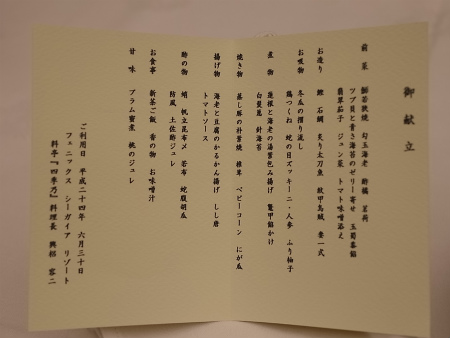 御献立
前菜 蝦芸政焼 勾玉海老 酢橘 茗荷
ツブ貝と青さ海苔のゼリー寄せ 玉蜀黍餡
翡翠茄子 ジュン菜 トマト味噌添え
お造り 鰹 石鯛 炙り太刀魚 紋甲烏賊 妻一式
お吸物 冬瓜の摺り流し
鶏つくね 蛇の目ズッキーニ・人参 ふり柚子
煮物 蓮根と海老の湯葉包み揚げ 鼈甲餡かけ
白髪葱 針海苔
焼き物 蒸し豚の朴葉焼 椎茸 ベビーコーン にが瓜
揚げ物 海老と豆腐のかるかん揚げ しし唐
トマトソース
酢の物 蛸 帆立昆布〆 若布 蛇腹胡瓜
防風 土佐酢ジュレ
お食事 新茶ご飯 香の物 お味噌汁
甘味 プラム蜜煮 桃のジュレ
ご利用日 平成二十四年 六月三十日
フェニックス シーガイア リゾート
料亭『四季乃』料理長 興梠 容二